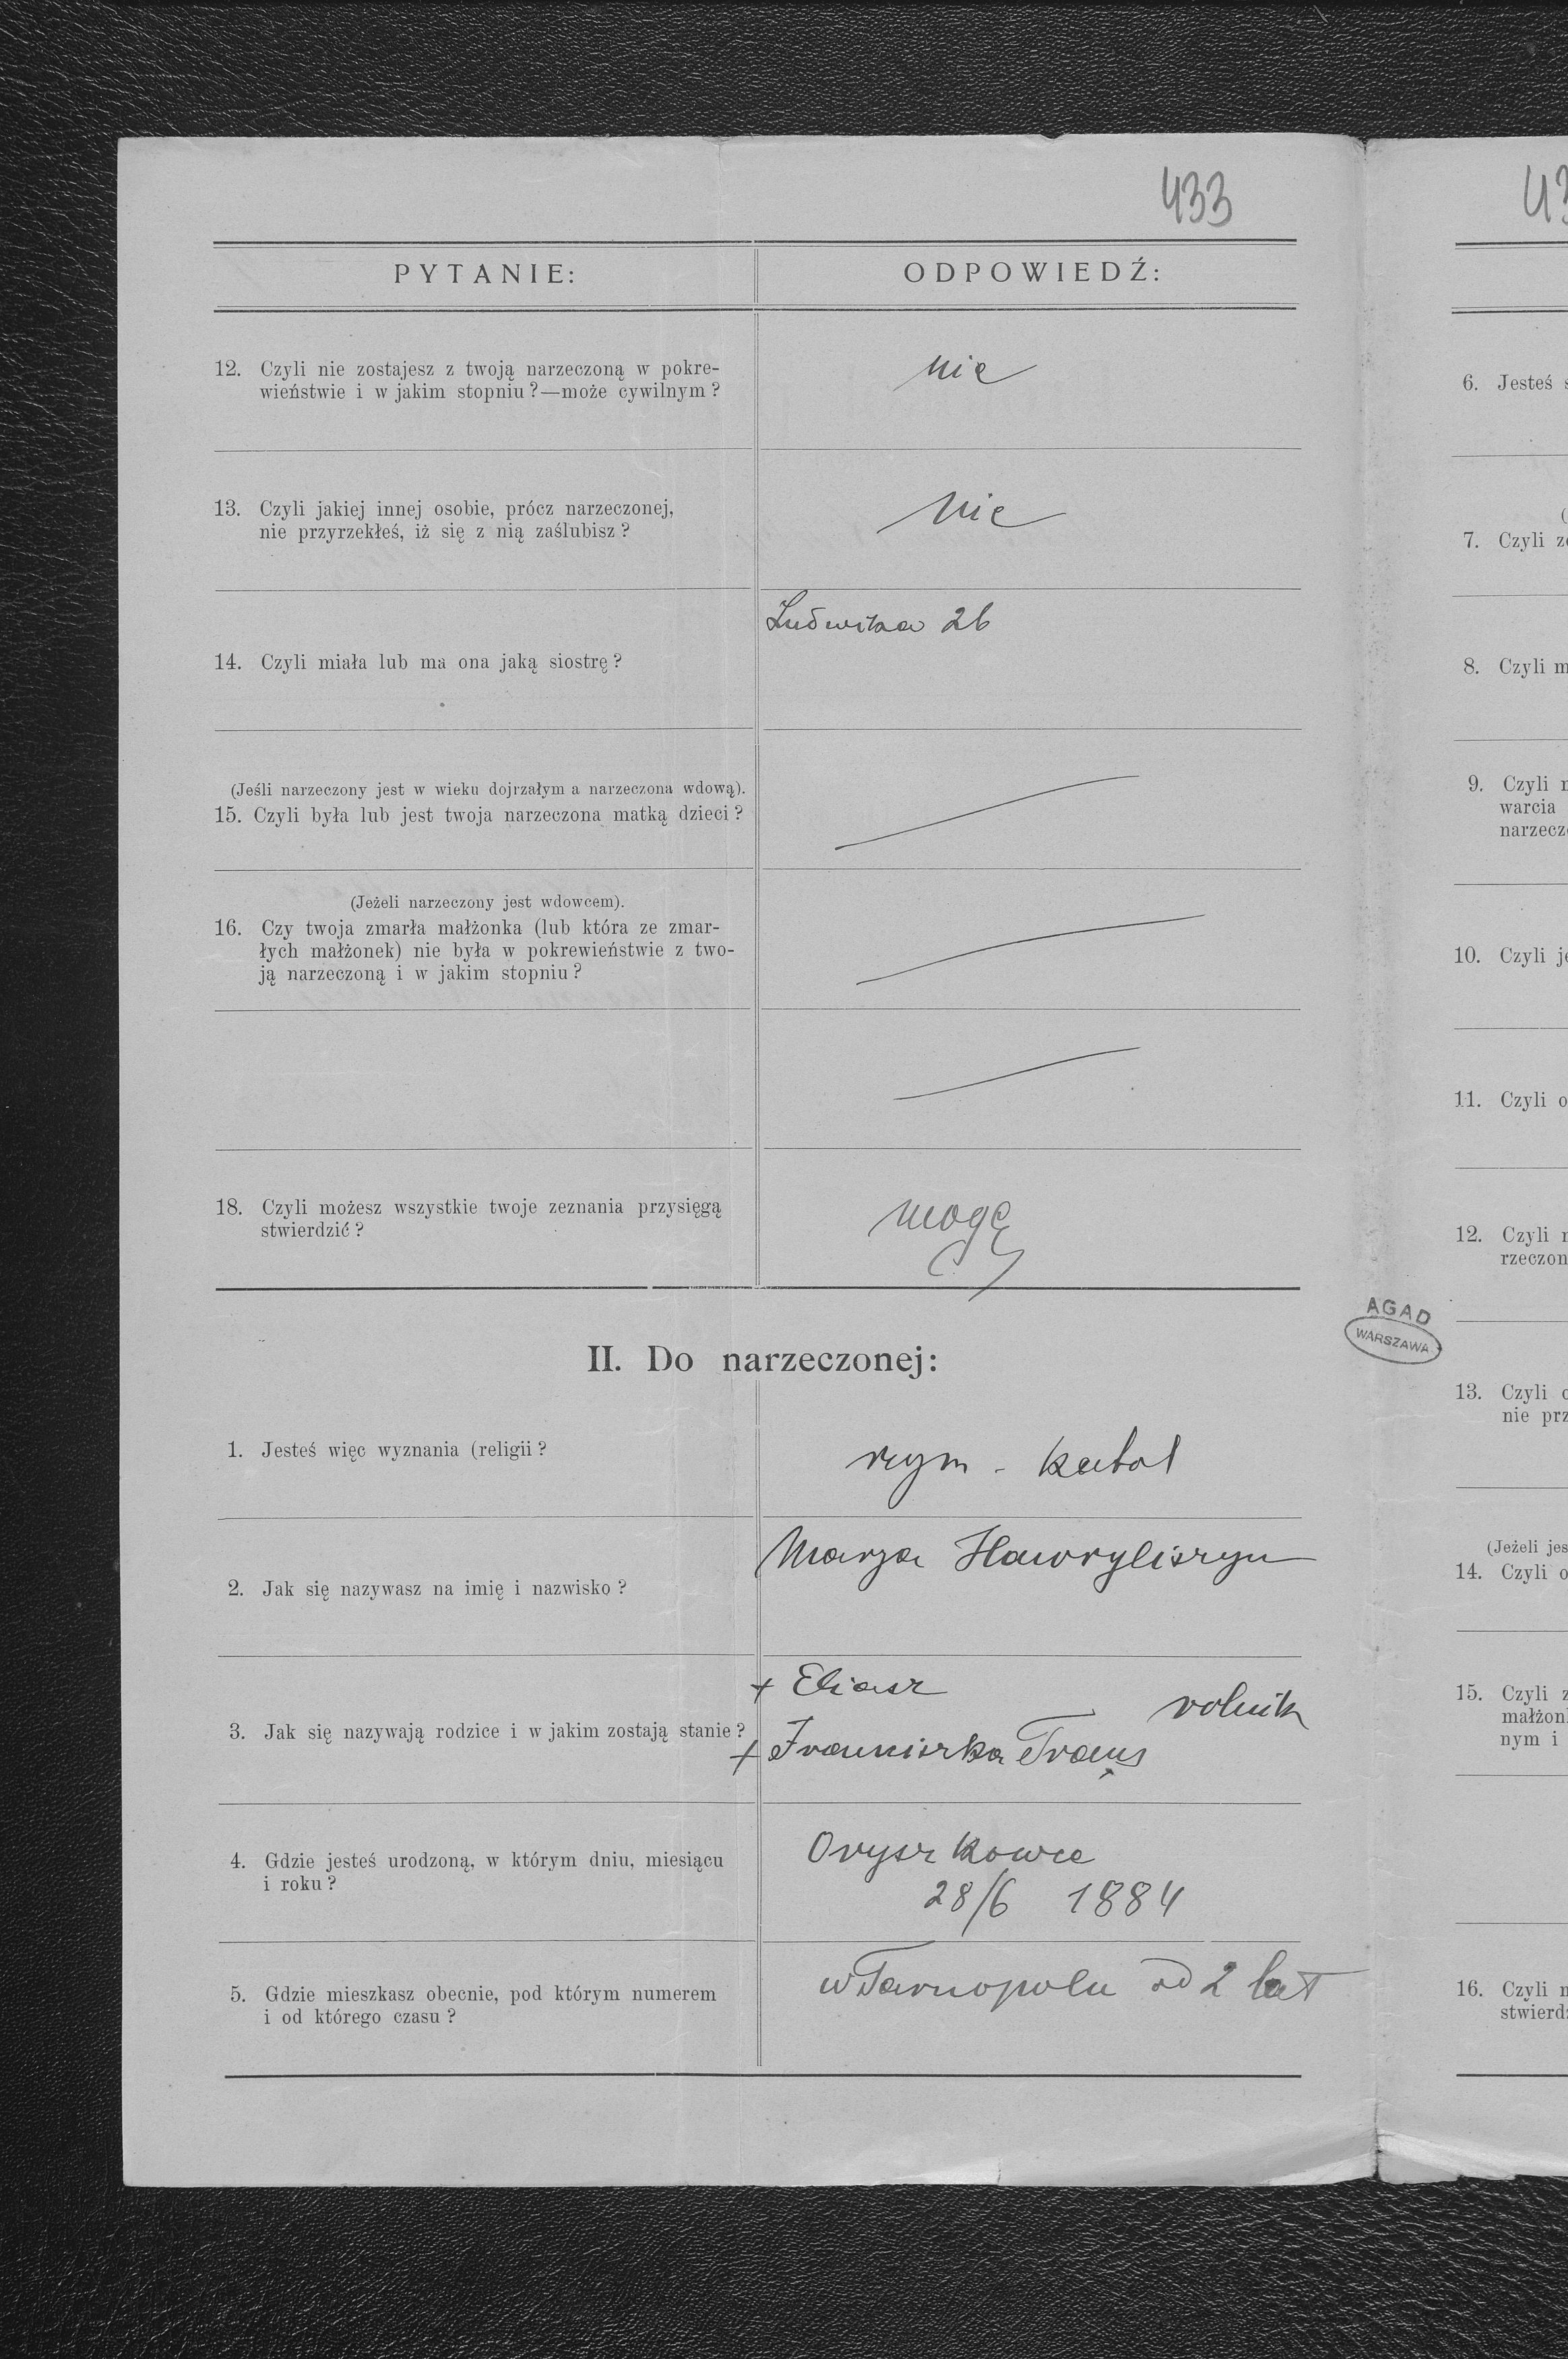 433
PYTANIE:
ODPOWIEDŹ:
12. Czyli nie zostajesz z twoją narzeczoną w pokre-
wieństwie i w jakim stopniu?—może cywilnym?
nie
13. Czyli jakiej innej osobie, prócz narzeczonej,
nie przyrzekłeś, iż się z nią zaślubisz?
nie
14. Czyli miała lub ma ona jaką siostrę?
Ludwika 26
(Jeśli narzeczony jest w wieku dojrzałym a narzeczona wdową).
15. Czyli była lub jest twoja narzeczona matką dzieci?
(Jeżeli narzeczony jest wdowcem).
16. Czy twoja zmarła małżonka (lub która ze zmar-
łych małżonek) nie była w pokrewieństwie z two-
ją narzeczoną i w jakim stopniu?
18. Czyli możesz wszystkie twoje zeznania przysięgą
stwierdzić?
mogę
II. Do narzeczonej:
1. Jesteś więc wyznania (religii?
rzym - katol
2. Jak się nazywasz na imię i nazwisko?
Marya Hawryliszyn
3. Jak się nazywają rodzice i w jakim zostają stanie?
+ Eliasz
rolnik
+ Franciszka
4. Gdzie jesteś urodzoną, w którym dniu, miesiącu
i roku?
Oryszkowce
28/6 1884
5. Gdzie mieszkasz obecnie, pod którym numerem
i od którego czasu?
w Tarnopolu od 2 lat
AGAD
WARSZAWA
6. Jesteś
7. Czyli
8. Czyli
9. Czyli
warcia
10. Czyli
11. Czyli
12. Czyli
13. Czyli
nie
(Jeżeli
14. Czyli
15. Czyli
nym i
16. Czyli